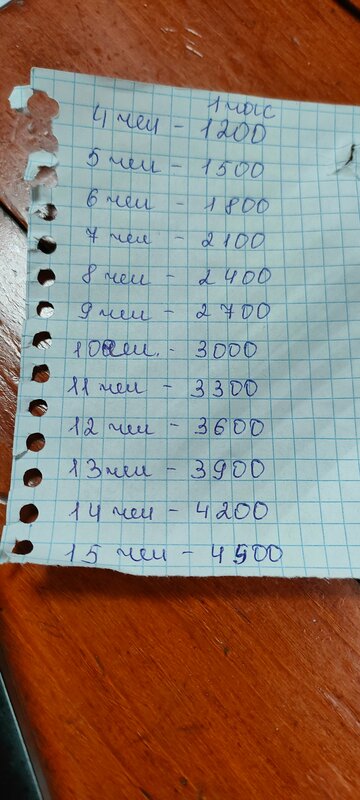 1 час
4 чел - 1200
5 чел - 1500
6 чел - 1800
7 чел - 2100
8 чел - 2400
9 чел - 2700
10 чел. - 3000
11 чел - 3300
12 чел - 3600
13 чел - 3900
14 чел - 4200
15 чел - 4500